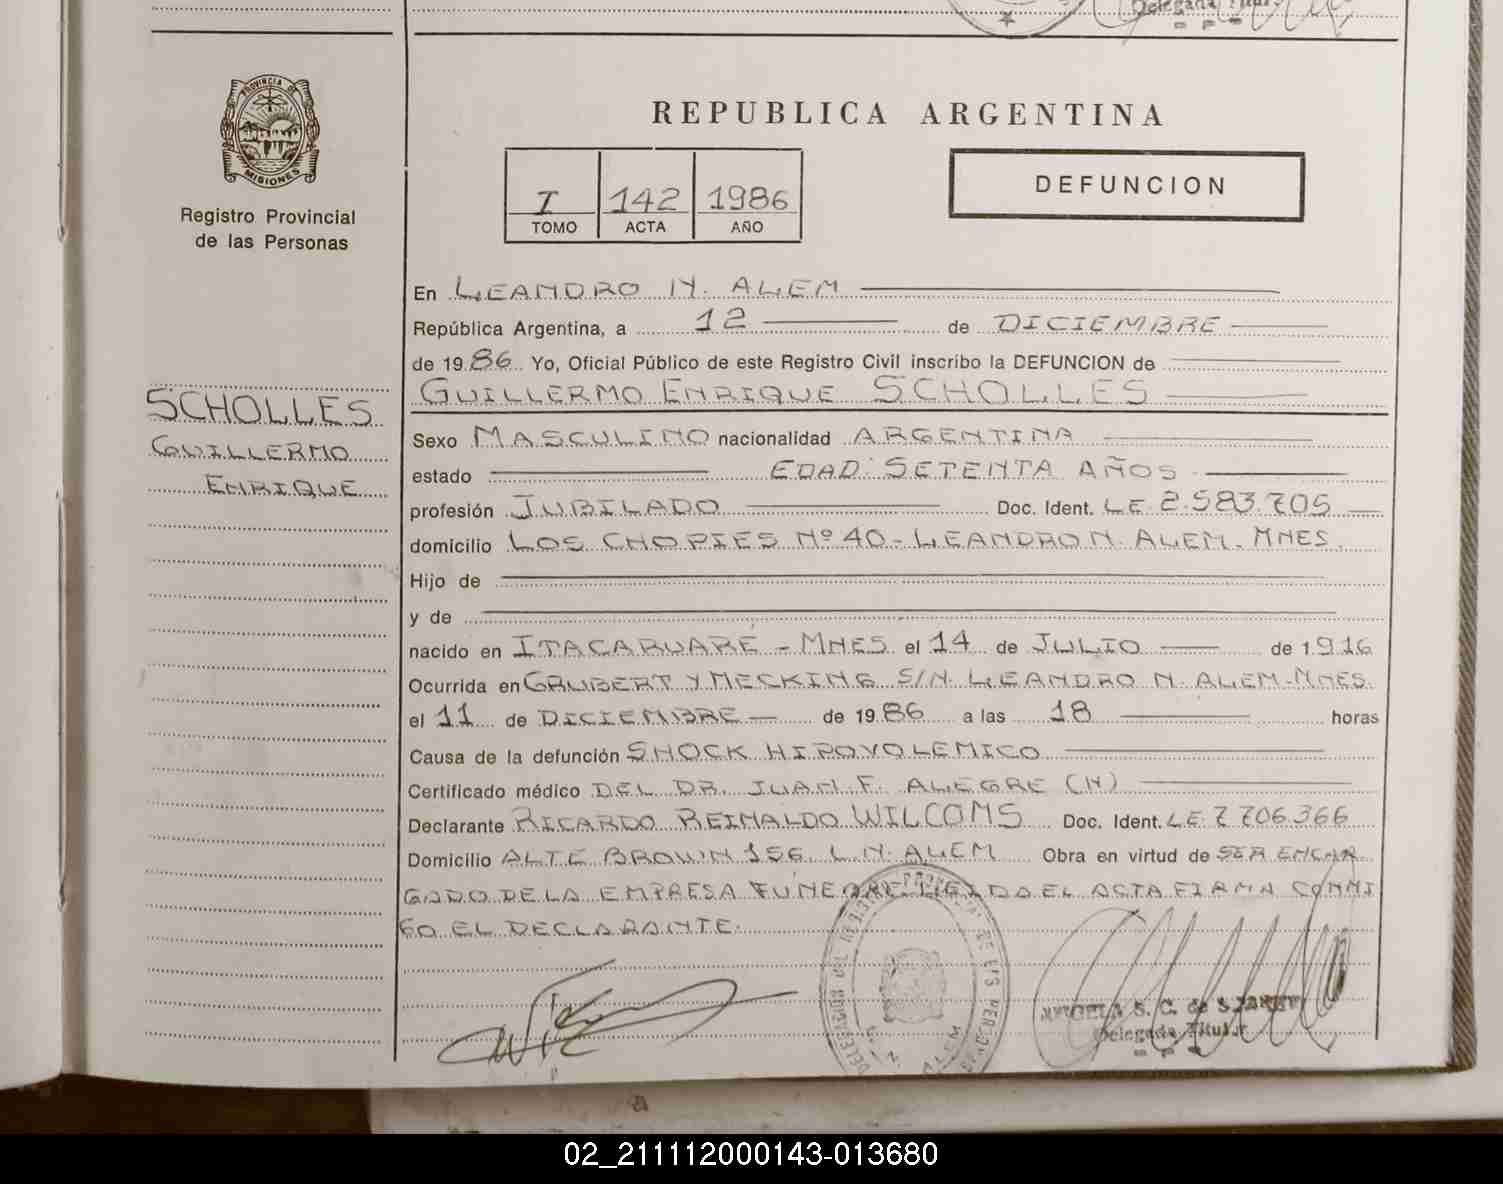 Delegada Titular
PROVINCIA DE
MISIONES
Registro Provincial
de las Personas
REPUBLICA ARGENTINA
I 142 1986
TOMO ACTA AÑO
DEFUNCION
En LEANDRO N. ALEM
República Argentina, a 12 de DICIEMBRE
de 1986 Yo, Oficial Público de este Registro Civil inscribo la DEFUNCION de
GUILLERMO ENRIQUE SCHOLLES
SCHOLLES
GUILLERMO
ENRIQUE
Sexo MASCULINO nacionalidad ARGENTINA
estado EDAD: SETENTA AÑOS
profesión JUBILADO Doc. Ident. LE 2.583.705
domicilio LOS CHOPIES Nº 40 - LEANDRO N. ALEM. MNES.
Hijo de
y de
nacido en ITACARUARE - MNES el 14 de JULIO de 1916
Ocurrida en GRUBERT Y MECKING S/N. LEANDRO N. ALEM-MNES.
el 11 de DICIEMBRE de 1986 a las 18 horas
Causa de la defunción SHOCK HIPOVOLEMICO
Certificado médico DEL DR. JUAN F. ALEGRE (N)
Declarante RICARDO REINALDO WILCOMS Doc. Ident. LE 7 706.366
Domicilio ALTE BROWN 156. L.N. ALEM Obra en virtud de SER ENCAR
GADO DE LA EMPRESA FUNEBRE. LEIDA EL ACTA FIRMA CONMI
GO EL DECLARANTE.
ANGELA S. C. de
Delegada Titular
02_211112000143-013680